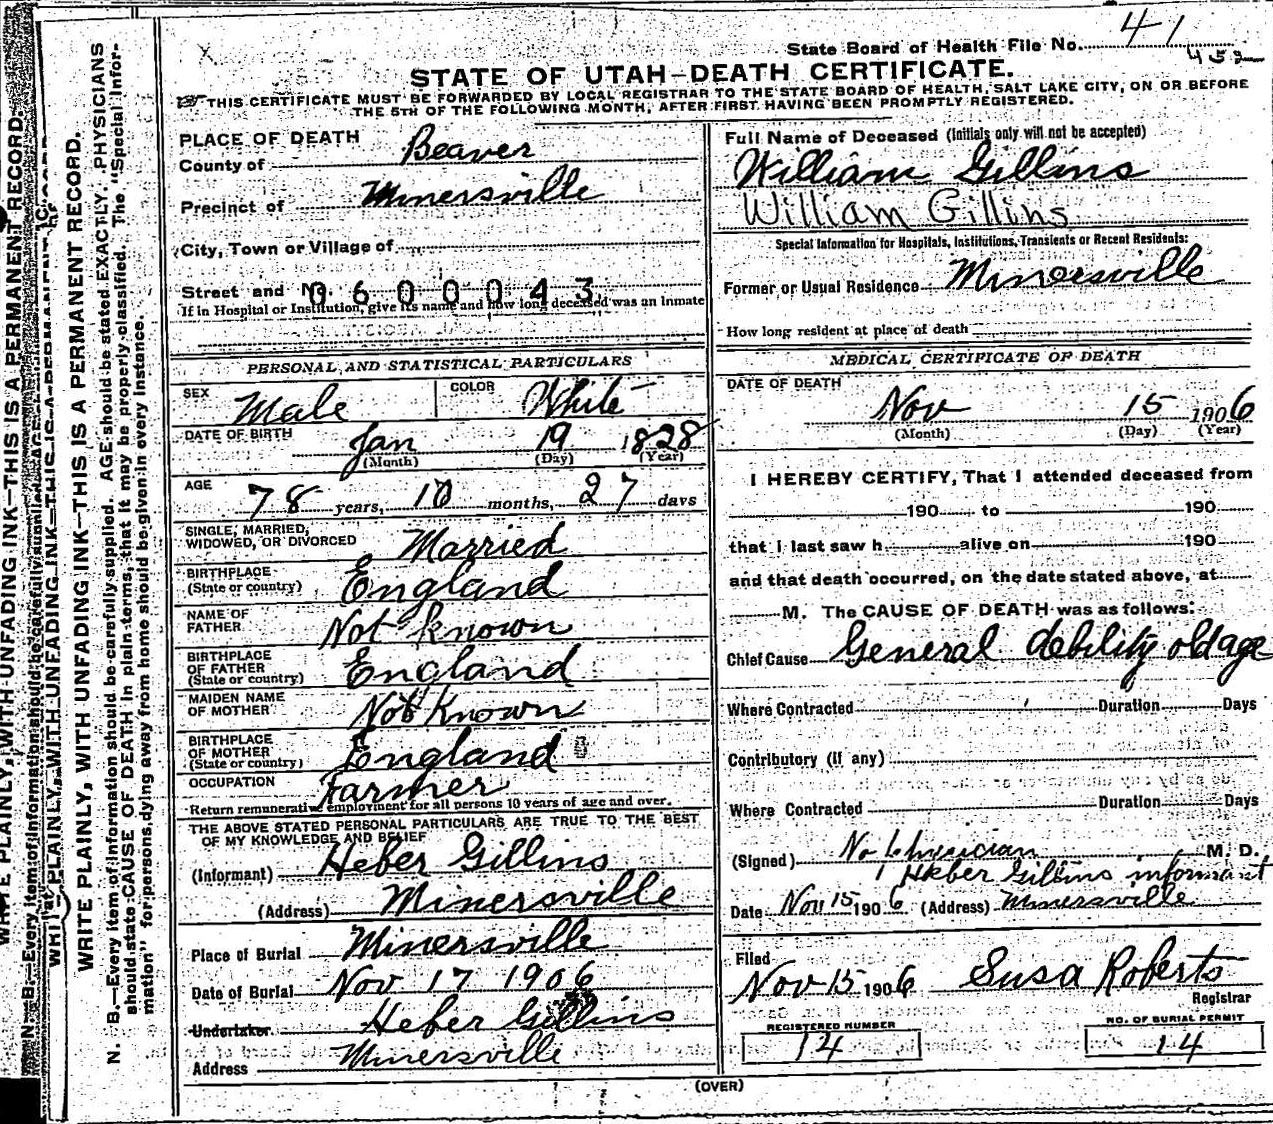 State Board of Health File No. 41
452
STATE OF UTAH—DEATH CERTIFICATE.
THIS CERTIFICATE MUST BE FORWARDED BY LOCAL REGISTRAR TO THE STATE BOARD OF HEALTH, SALT LAKE CITY, ON OR BEFORE
THE 5TH OF THE FOLLOWING MONTH, AFTER FIRST HAVING BEEN PROMPTLY REGISTERED.
PLACE OF DEATH
County of Beaver
Precinct of Minersville
City, Town or Village of
Street and N
0600043
If in Hospital or Institution, give its name and how long deceased was an Inmate
Full Name of Deceased (Initials only will not be accepted)
William Gillins
William Gillins
Special Information for Hospitals, Institutions, Transients or Recent Residents:
Former or Usual Residence Minersville
How long resident at place of death
PERSONAL AND STATISTICAL PARTICULARS
SEX Male COLOR White
DATE OF BIRTH Jan 19 1828
(Month) (Day) (Year)
AGE 78 years, 10 months, 27 days
SINGLE, MARRIED,
WIDOWED, OR DIVORCED Married
BIRTHPLACE
(State or country) England
NAME OF
FATHER Not known
BIRTHPLACE
OF FATHER
(State or country) England
MAIDEN NAME
OF MOTHER Not Known
BIRTHPLACE
OF MOTHER
(State or country) England
OCCUPATION Farmer
Return remunerative employment for all persons 10 years of age and over.
THE ABOVE STATED PERSONAL PARTICULARS ARE TRUE TO THE BEST
OF MY KNOWLEDGE AND BELIEF
(Informant) Heber Gillins
(Address) Minersville
Place of Burial Minersville
Date of Burial Nov 17 1906
Undertaker Heber Gillins
Address Minersville
MEDICAL CERTIFICATE OF DEATH
DATE OF DEATH
Nov 15 1906
(Month) (Day) (Year)
I HEREBY CERTIFY, That I attended deceased from
190 to 190
that I last saw h alive on 190
and that death occurred, on the date stated above, at
M. The CAUSE OF DEATH was as follows:
Chief Cause General debility old age
Where Contracted Duration Days
Contributory (if any)
Where Contracted Duration Days
(Signed) No Physician M. D.
Heber Gillins informant
Date Nov 15 1906 (Address) Minersville
Filed
Nov 15 1906 Susa Roberts
Registrar
REGISTERED NUMBER
14
NO. OF BURIAL PERMIT
14
(OVER)
WRITE PLAINLY, WITH UNFADING INK—THIS IS A PERMANENT RECORD.
N. B.—Every item of information should be carefully supplied. AGE should be stated EXACTLY. PHYSICIANS
should state CAUSE OF DEATH in plain terms, that it may be properly classified. The "Special Infor-
mation" for persons dying away from home should be given in every instance.